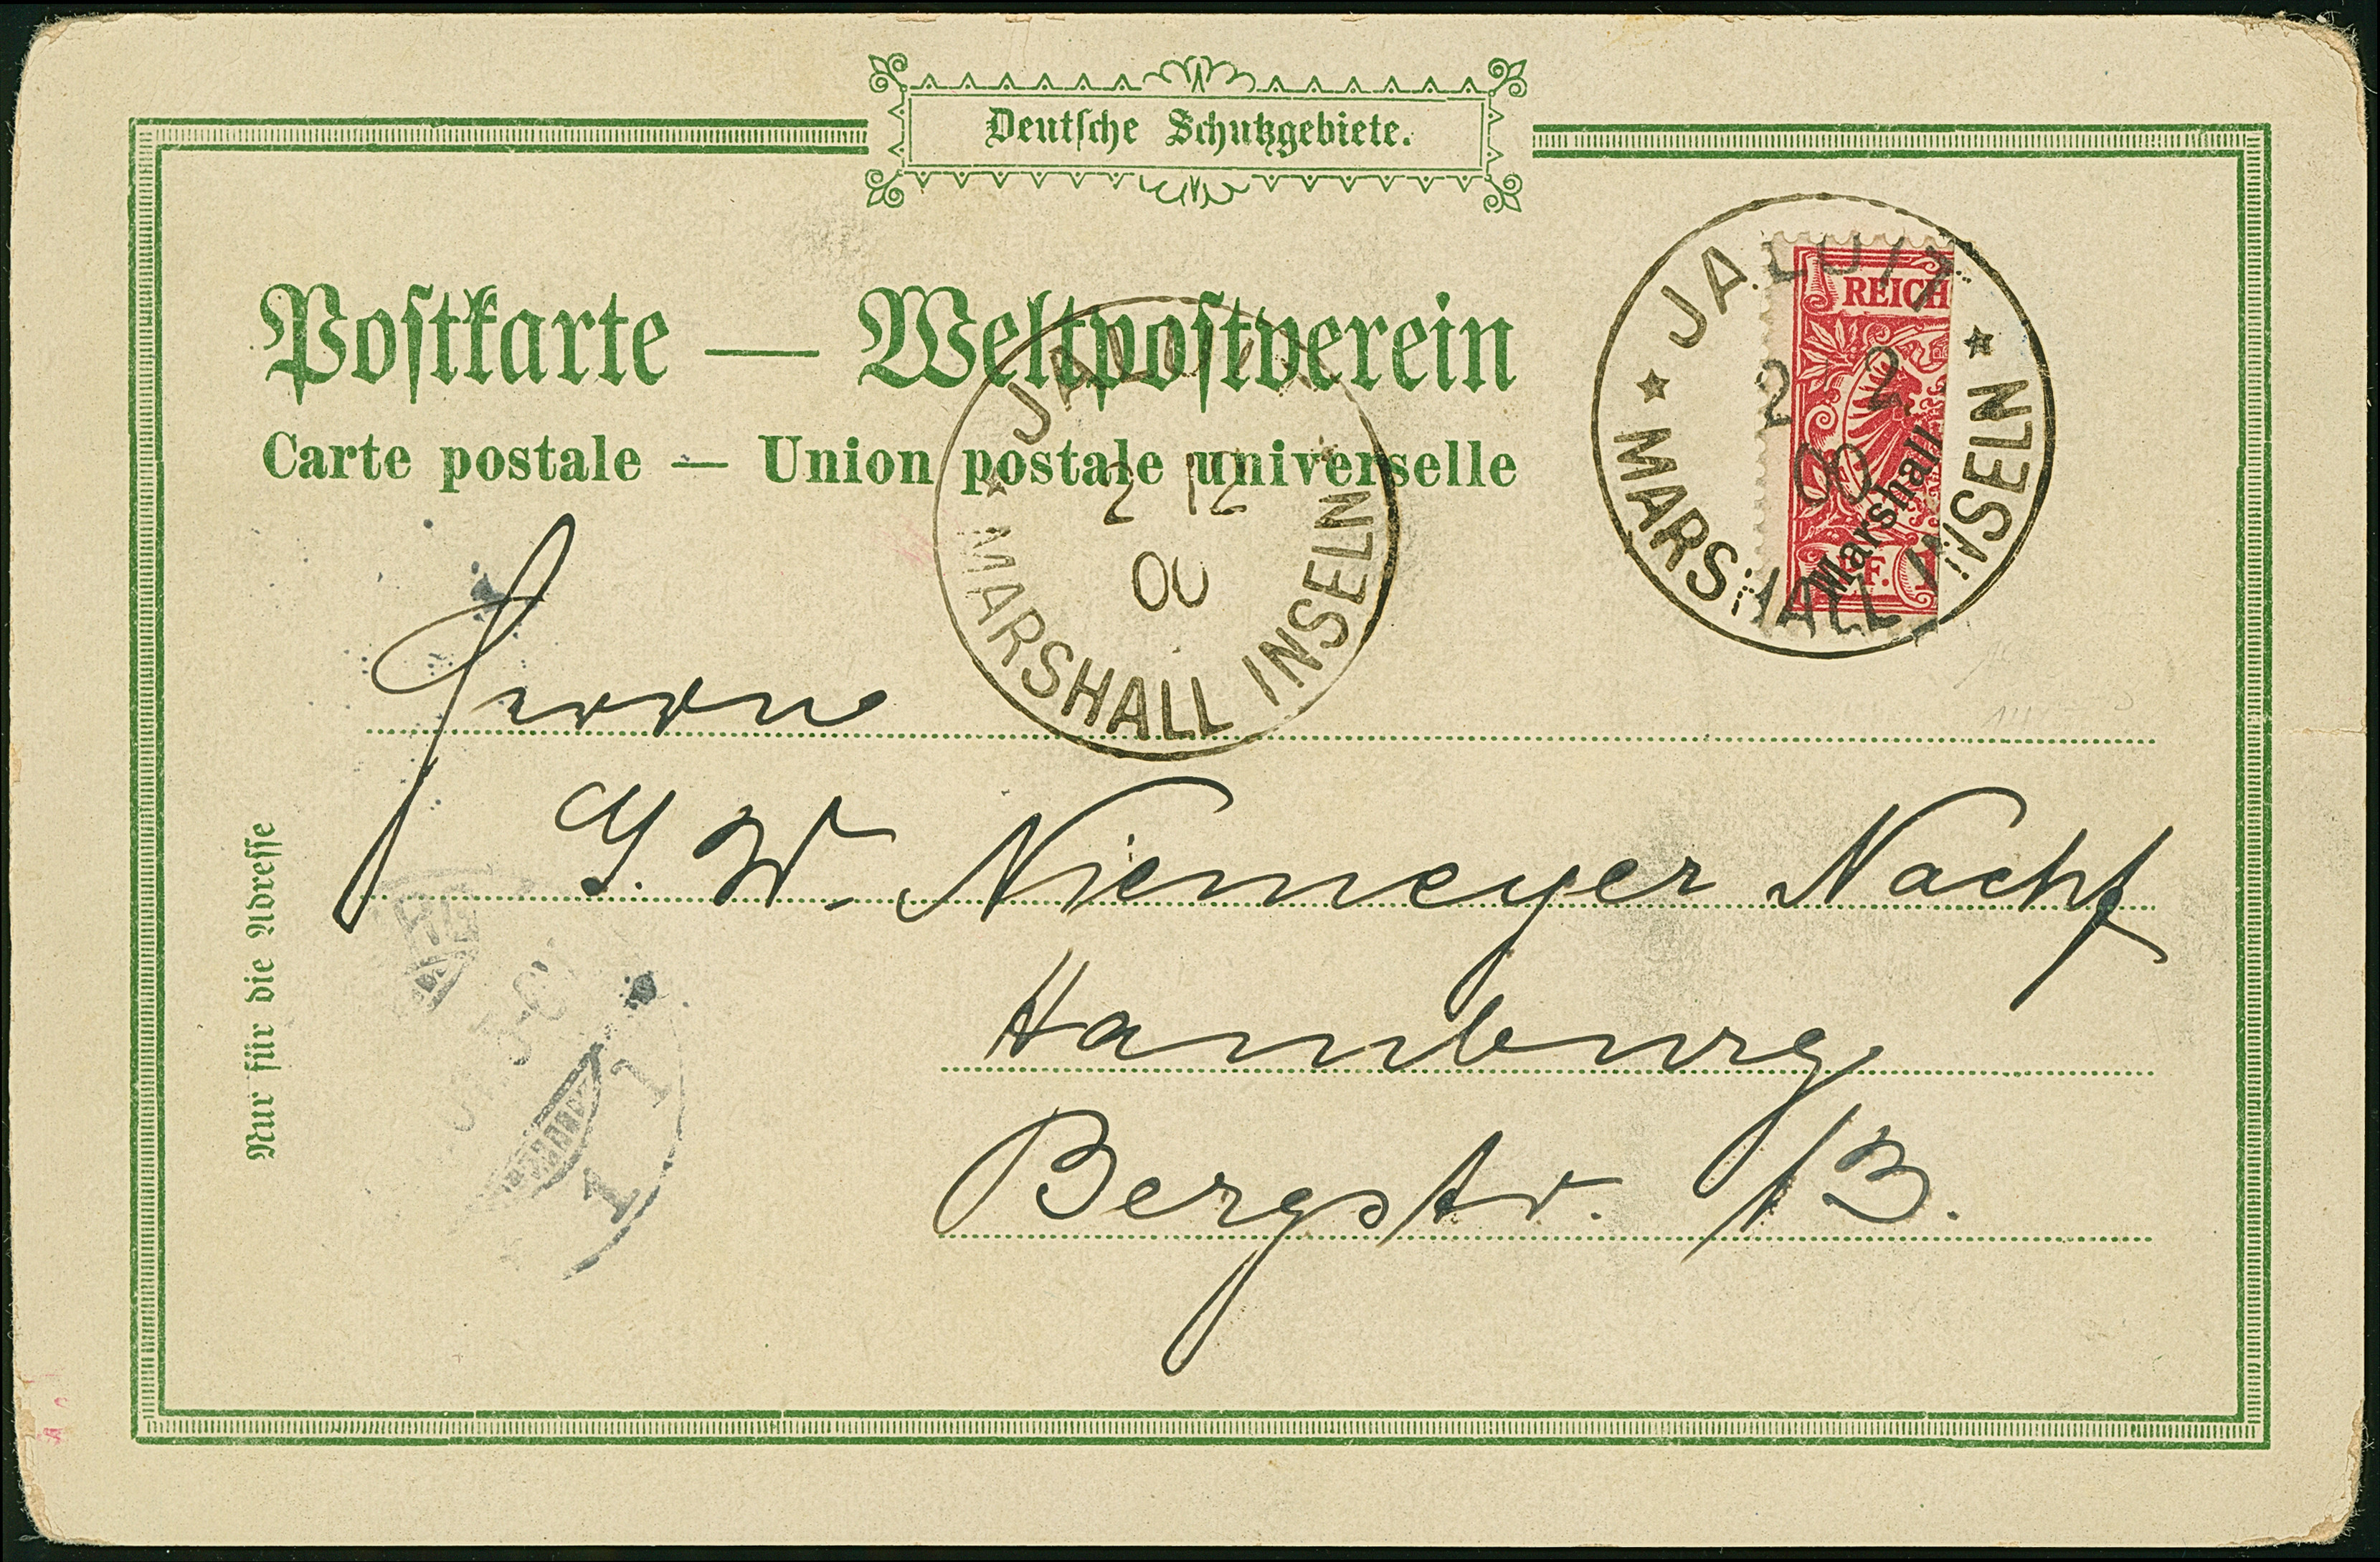 Deutsche Schutzgebiete.
Postkarte — Weltpostverein
Carte postale — Union postale universelle
JALUIT
2 2
00
MARSHALL INSELN
REICH
Marshall
PF. 1
JALUIT
2 12
00
MARSHALL INSELN
Herrn
G. W. Niemeyer Nachf
Hamburg
Bergstr. 13.
Nur für die Adresse
1
1